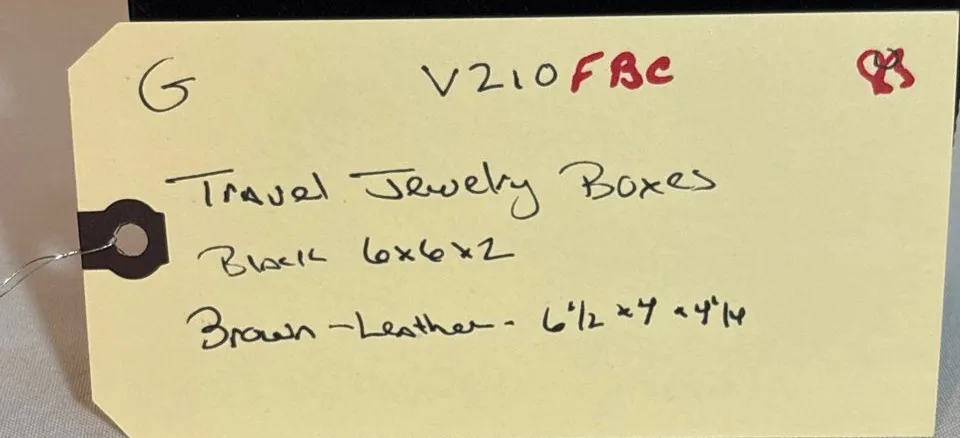 G V210FBC
Travel Jewelry Boxes
Black 6x6x2
Brown - Leather - 6 1/2 x 4 x 4 1/4